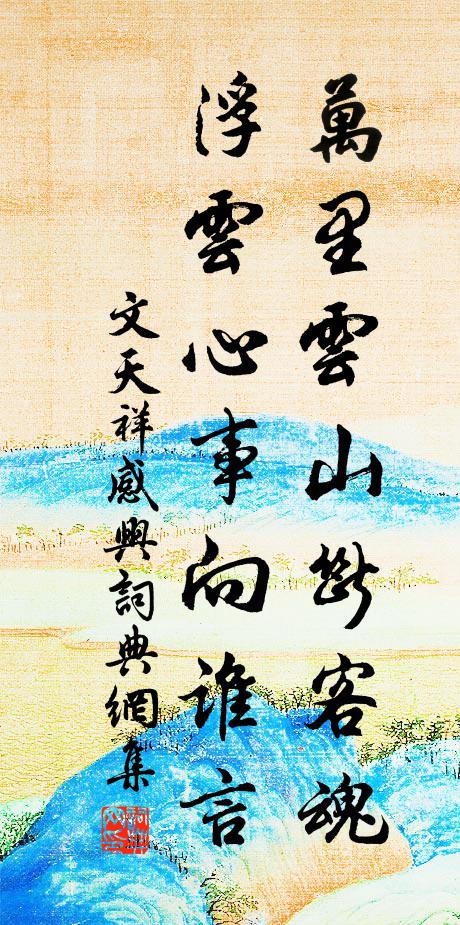 萬里雲山斷客魂
浮雲心事向誰言
文天祥感興詞典網集